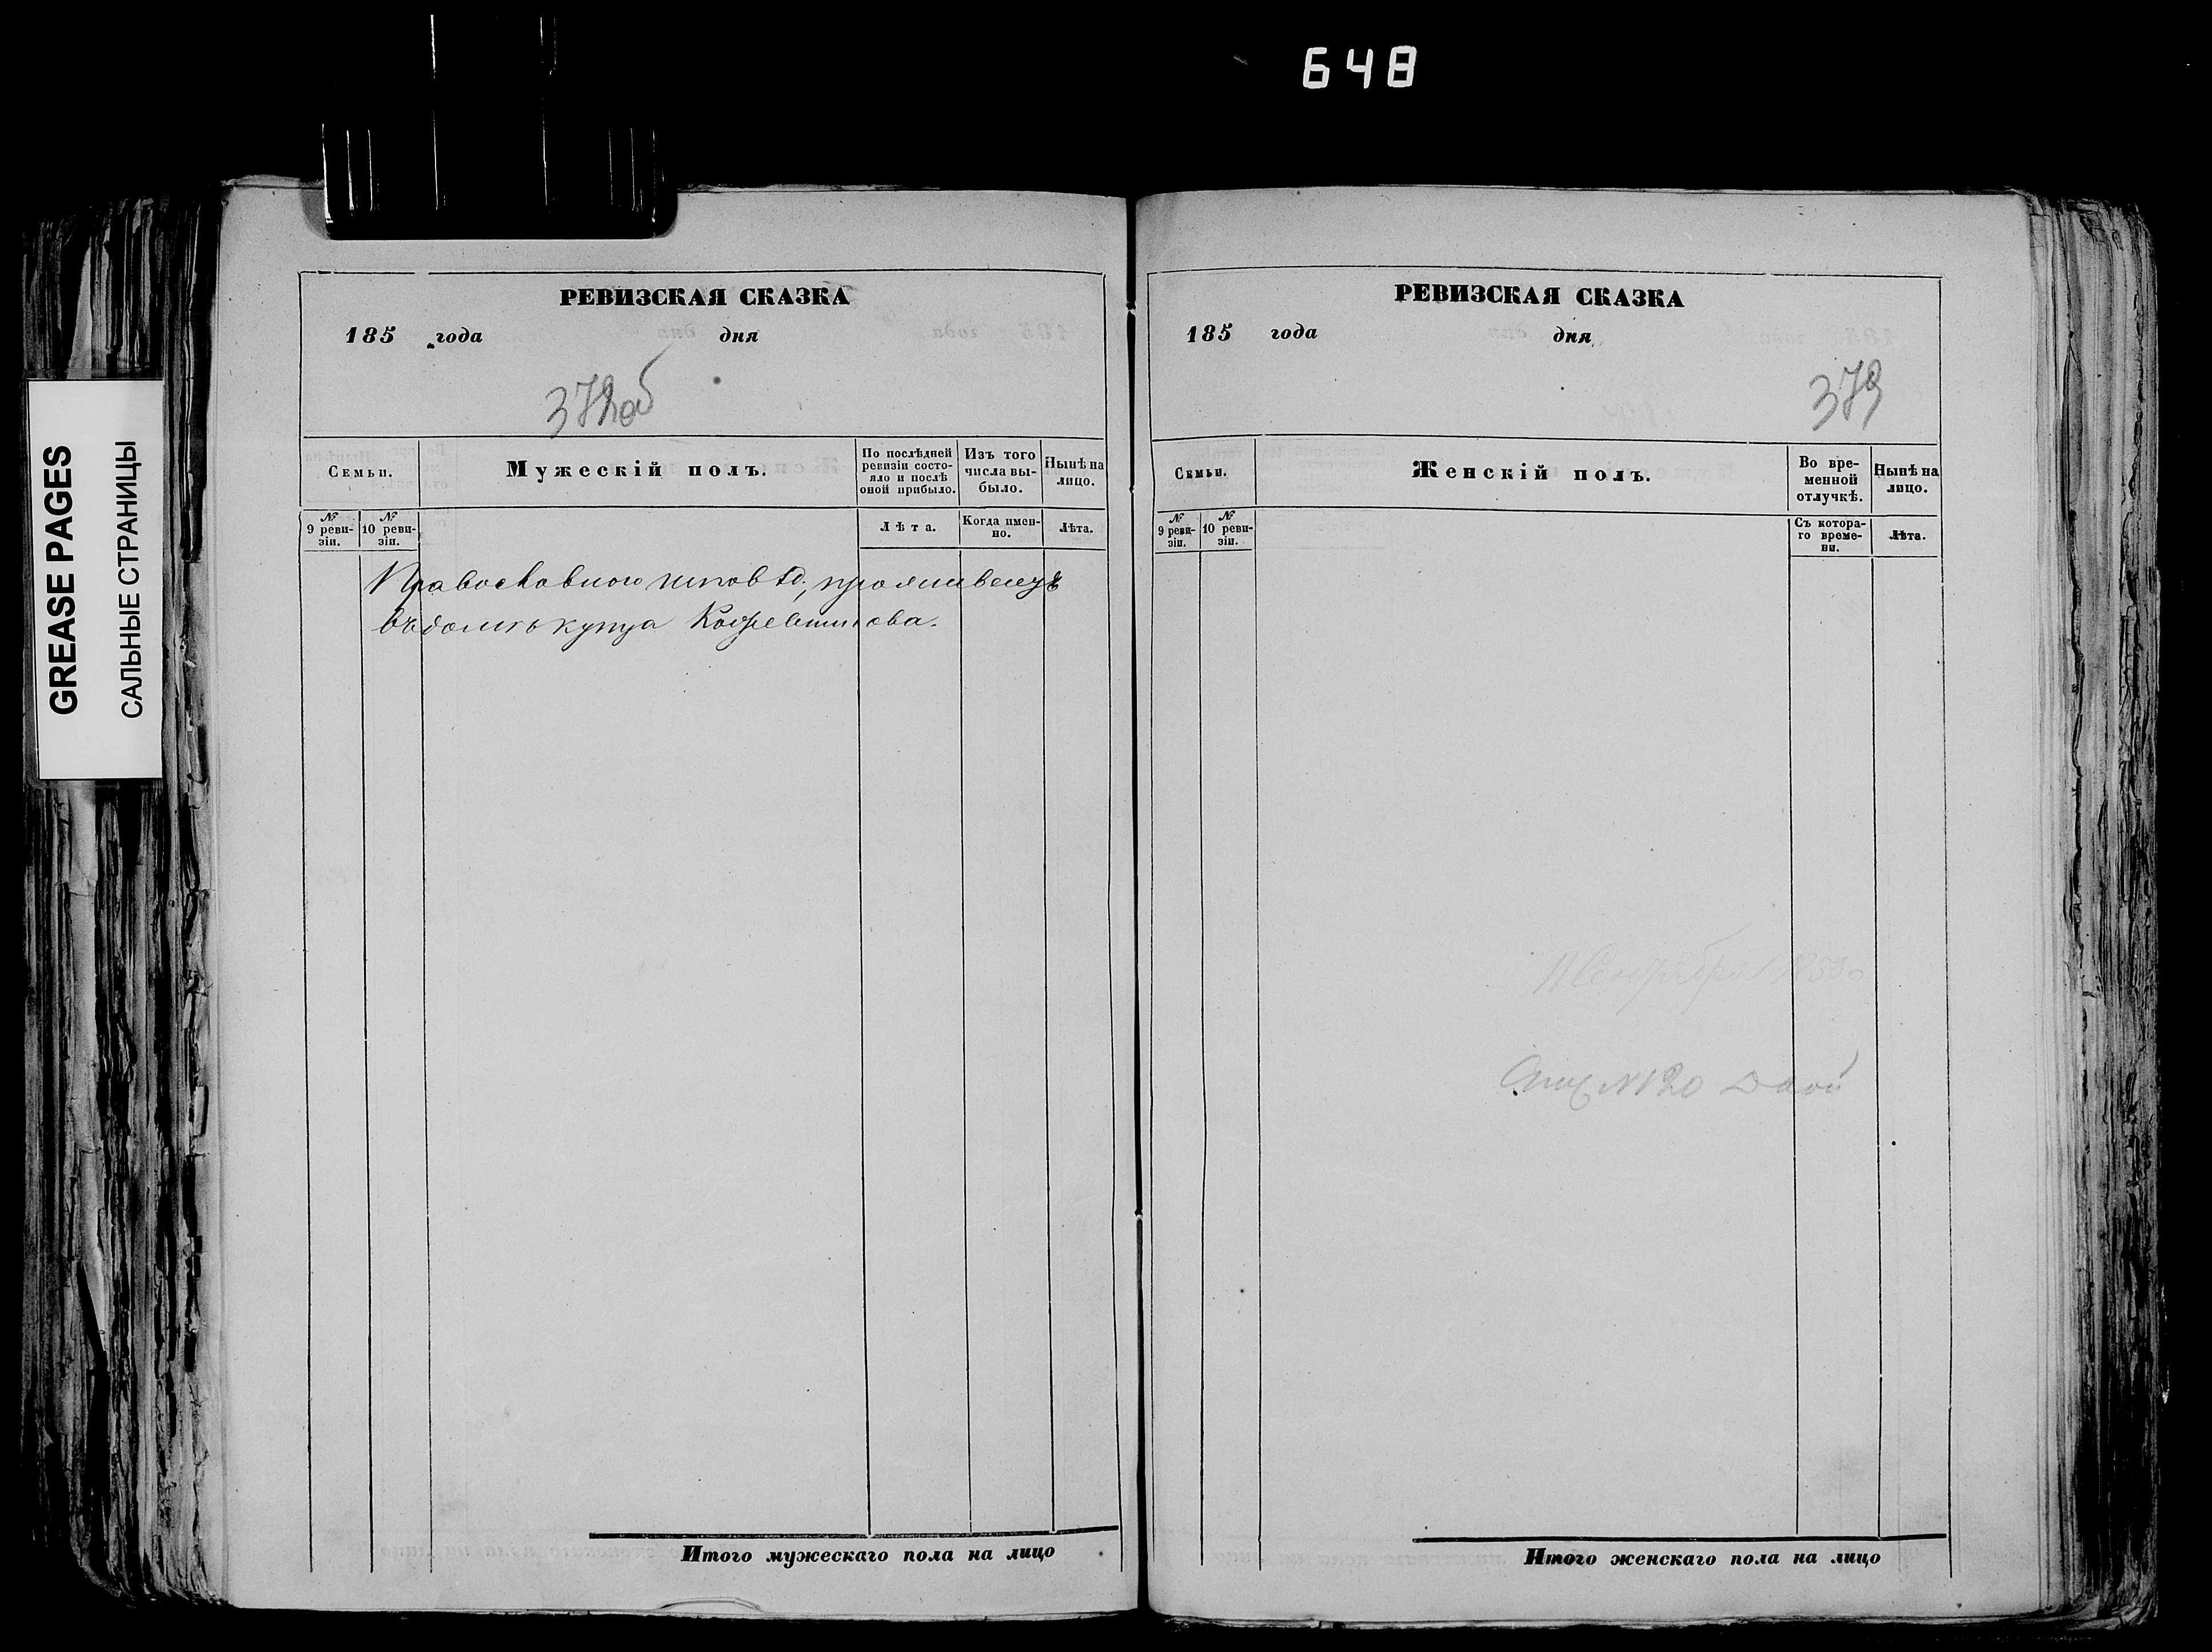 648
GREASE PAGES
САЛЬНЫЕ СТРАНИЦЫ
РЕВИЗСКАЯ СКАЗКА
185 года дня
378об
Семьи.
Мужескій полъ.
По послѣдней ревизіи состо-
яло и послѣ оной прибыло.
Изъ того числа вы-
было.
Нынѣ на лицо.
№ 9 реви-
зіи.
№ 10 реви-
зіи.
Лѣта.
Когда имен-
но.
Лѣта.
Православного исповѣд., проживаетъ
въ домѣ купца
Итого мужескаго пола на лицо
РЕВИЗСКАЯ СКАЗКА
185 года дня
379
Семьи.
Женскій полъ.
Во вре-
менной
отлучкѣ.
Нынѣ на
лицо.
№ 9 реви-
зіи.
№ 10 реви-
зіи.
Съ котора-
го време-
ни.
Лѣта.
11 Сентября
№ 120
Итого женскаго пола на лицо